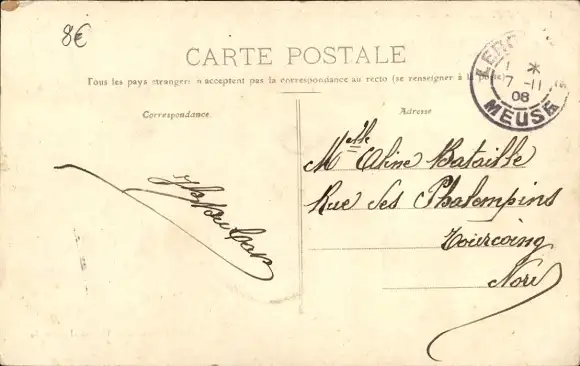 8€
CARTE POSTALE
Tous les pays étrangers n'acceptent pas la correspondance au recto (se renseigner à la poste)
7 -11
08
MEUSE
Correspondance
Adresse
Melle Aline Bataille
Rue des Phalempins
Tourcoing
Nord